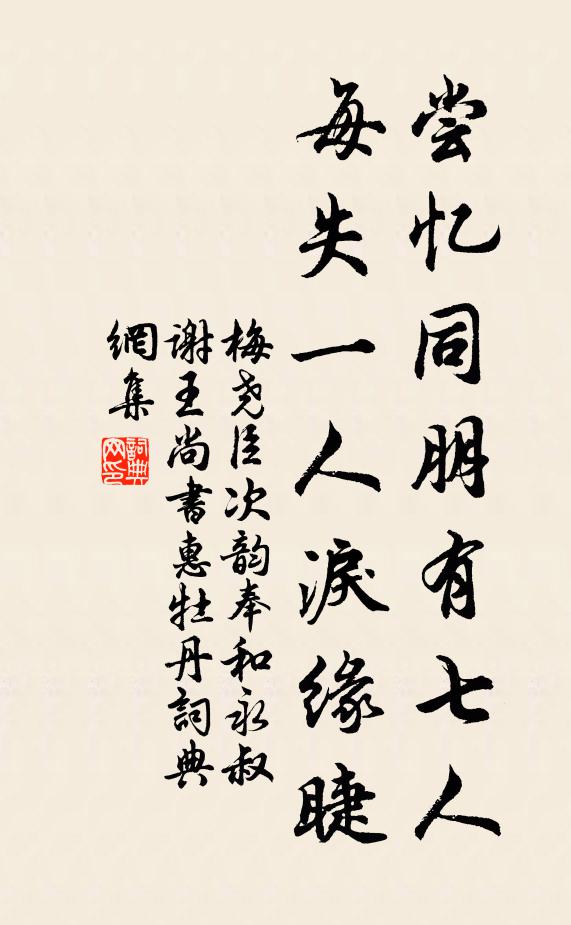 尝忆同朋有七人
每失一人淚缘睫
梅尧臣次韵奉和永叔
谢王尚書惠牡丹詞典
網集
詞典
网印